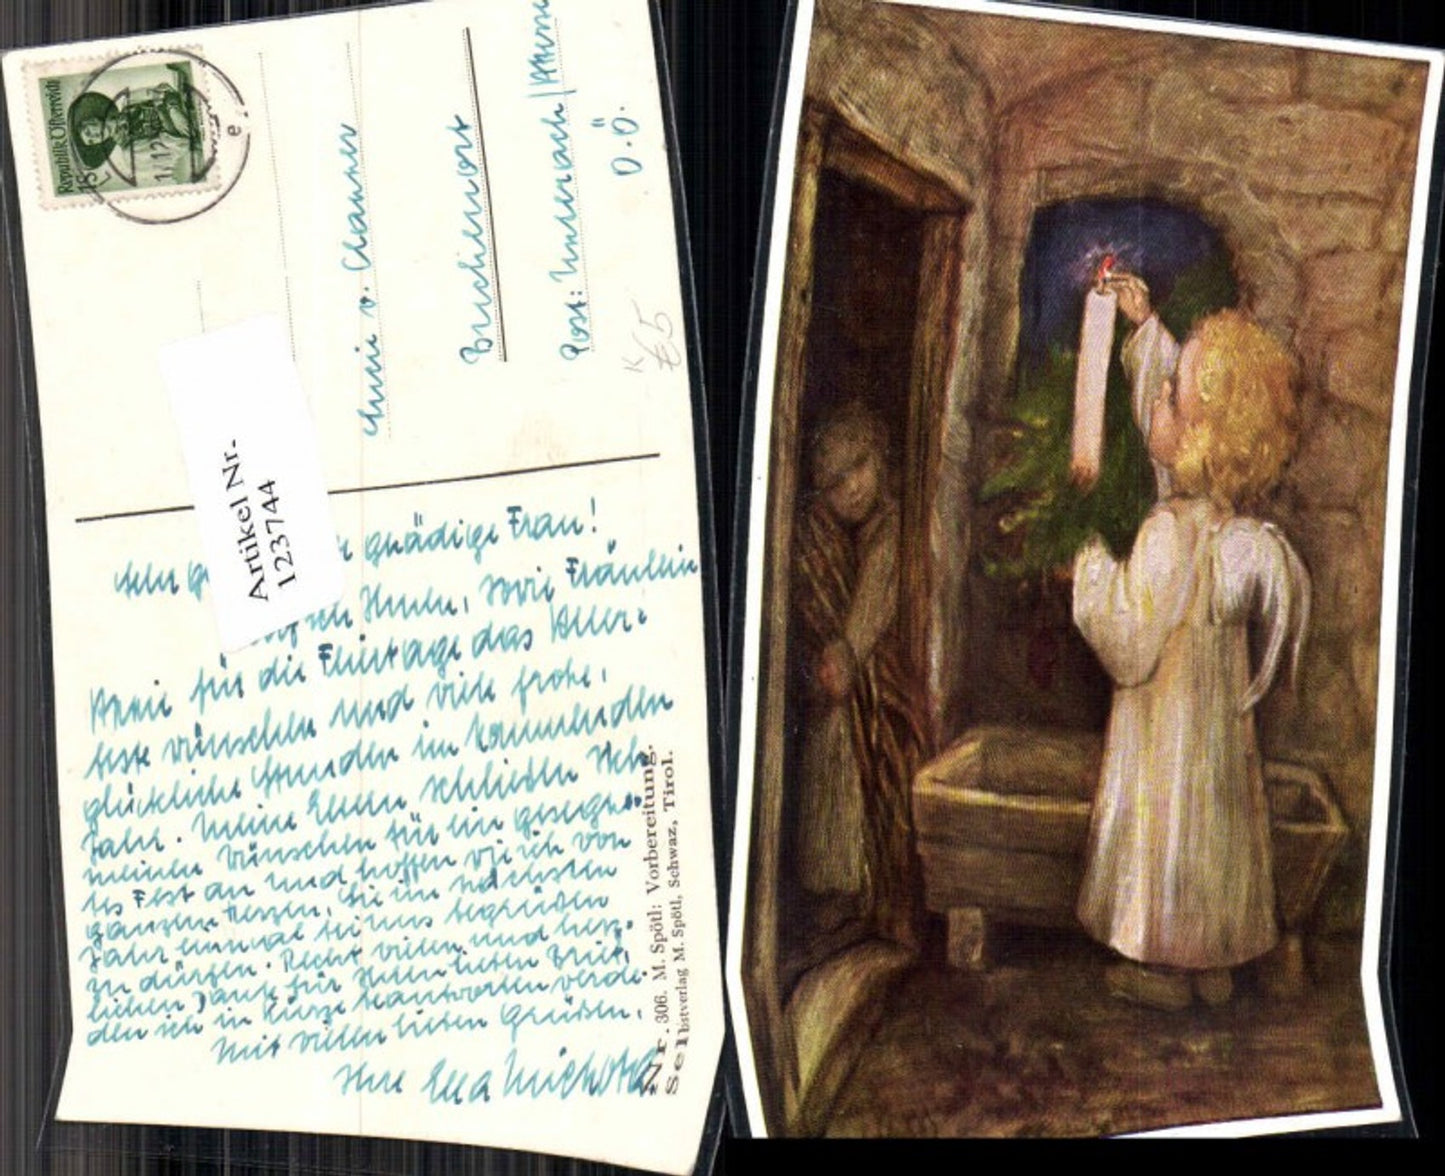 Republik Österreich
15
1.12
e.
v. Clanner
Bruckmort
Post:
O.Ö.
K
€5
Artikel Nr.
123744
gnädige Frau!
Ihnen, wie Fräulein
für die Feiertage das Aller-
beste wünschen und viele frohe,
glückliche Stunden im kommenden
Jahr. Meine Eltern schließen sich
meinen Wünschen für ein gesegne-
tes Fest an und hoffen wie ich von
ganzem Herzen, Sie im nächsten
Jahr einmal bei uns begrüßen
zu dürfen. Recht vielen und herz-
lichen Dank für Ihren lieben Brief,
den ich in Kürze beantworten werde.
Mit vielen lieben Grüßen,
Ihre
Nr. 306. M. Spötl: Vorbereitung.
Selbstverlag M. Spötl, Schwaz, Tirol.